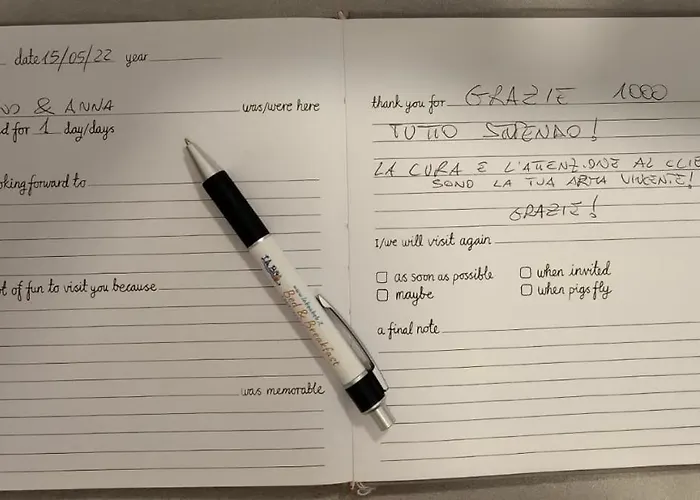 date 15/05/22 year
& ANNA was/were here
for 1 day/days
oking forward to
t of fun to visit you because
was memorable
Bed & Breakfast
thank you for GRAZIE 1000
TUTTO STUPENDO!
LA CURA E L'ATTENZIONE AL CLIE
SONO LA TUA ARMA VINCENTE!
GRAZIE!
I/we will visit again
as soon as possible
when invited
maybe
when pigs fly
a final note